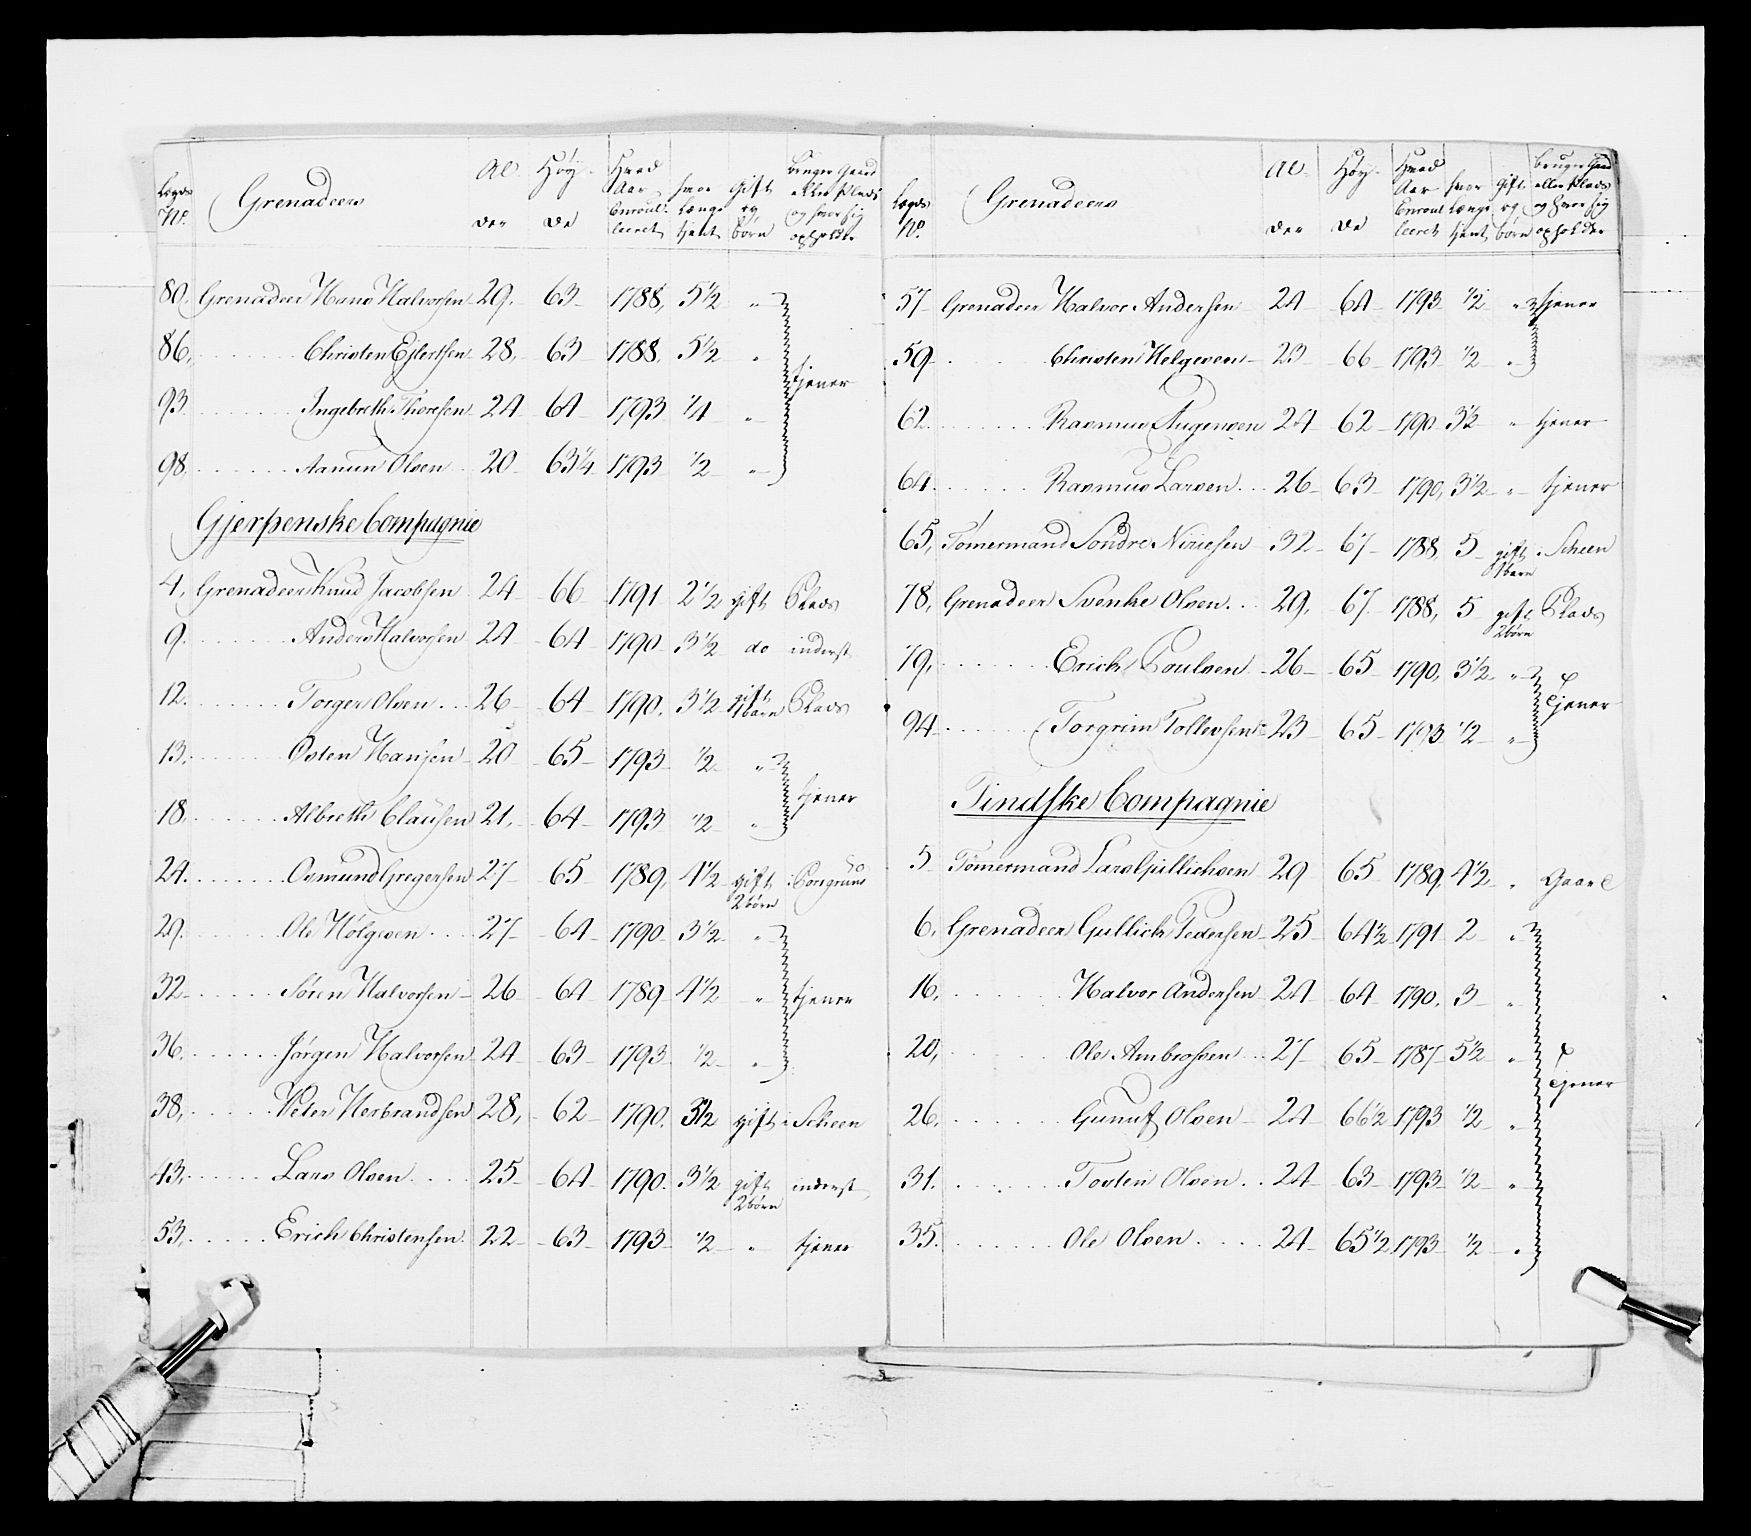 Lægds No. Grenadeers Alder Høyde Hvad Aar Enroulleeret hvor Længe tjent Gift og børn bruger Gaard eller Plads og hvor sig opholder
80. Grenadeer Hans Halvorsen 29. 63 1788, 5½ "
86. Christen Eilertsen 28, 63 1788, 5½ " tjener
93 Ingebreth Thoresen 24 64 1793 ¼ "
98. Aanun Olsen 20 63¼ 1793 ½ "
Gjerpenske Compagnie
4, Grenadeer Knud Jacobsen 24 66 1791 2½ gift Plads
9. Anders Halvorsen 24 64 1790 3½ do inderst
12. Torger Olsen 26 64 1790. 3½ gift 1 børn Plads
13. Osten Hansen 20 65 1793 ½ "
18. Albreth Clausen 21. 64 1793 ½ " tjener
24. Osmund Gregersen 27 65 1789, 4½ gift 2 børn Porsgrund
29. Ole Holgesen 27 64 1790 3½ "
32 Søren Halvorsen 26 64 1789 4½ " tjener
36. Jørgen Halvorsen 24 63 1793 ½ "
38, Peter Herbrandsen 28, 62 1790. 3½ gift Scheen
43, Lars Olsen 25 64 1790. 3½ gift 2 børn inderst
53, Erich Christensen 22 63 1793 ½ " tjener
Lægds No. Grenadeers Alder Høyde Hvad Aar Enroulleeret hvor Længe tjent Gift og børn bruger Gaard eller Plads og hvor sig opholder
57 Grenadeer Halvor Andersen 24 64 1793 ½ " tjener
59 Christen Helgesen 23 66 1793 ½ "
62. Rasmus 24 62 1790 3½ " tjener
64. Rasmus Larsen 26 63 1790, 3½ " tjener
65, Tømermand Sondre 32 67 1788, 5 gift 1 barn Scheen
78, Grenadeer Svenke Olsen 29, 67 1788, 5 gift 2 børn Plads
79, Erich Poulsen 26 65 1790, 3½ "
94 Torgrim Tollevsen 23 65 1793 ½ " tjener
Tindske Compagnie
5 Tømermand Lars Gullichsen 29 65 1789, 4½ " Gaard
6, Grenadeer Gullich Pedersen 25 64½ 1791 2 "
16, Halvor Andersen 24 64 1790. 3 "
20, Ole Ambrosen 27 65 1787 5½ " tjener
26. Gunuf Olsen 24 66½ 1793 ½ "
31. Tosten Olsen 24 63 1793 ½ "
35. Ole Olsen 24 65½ 1793 ½ "